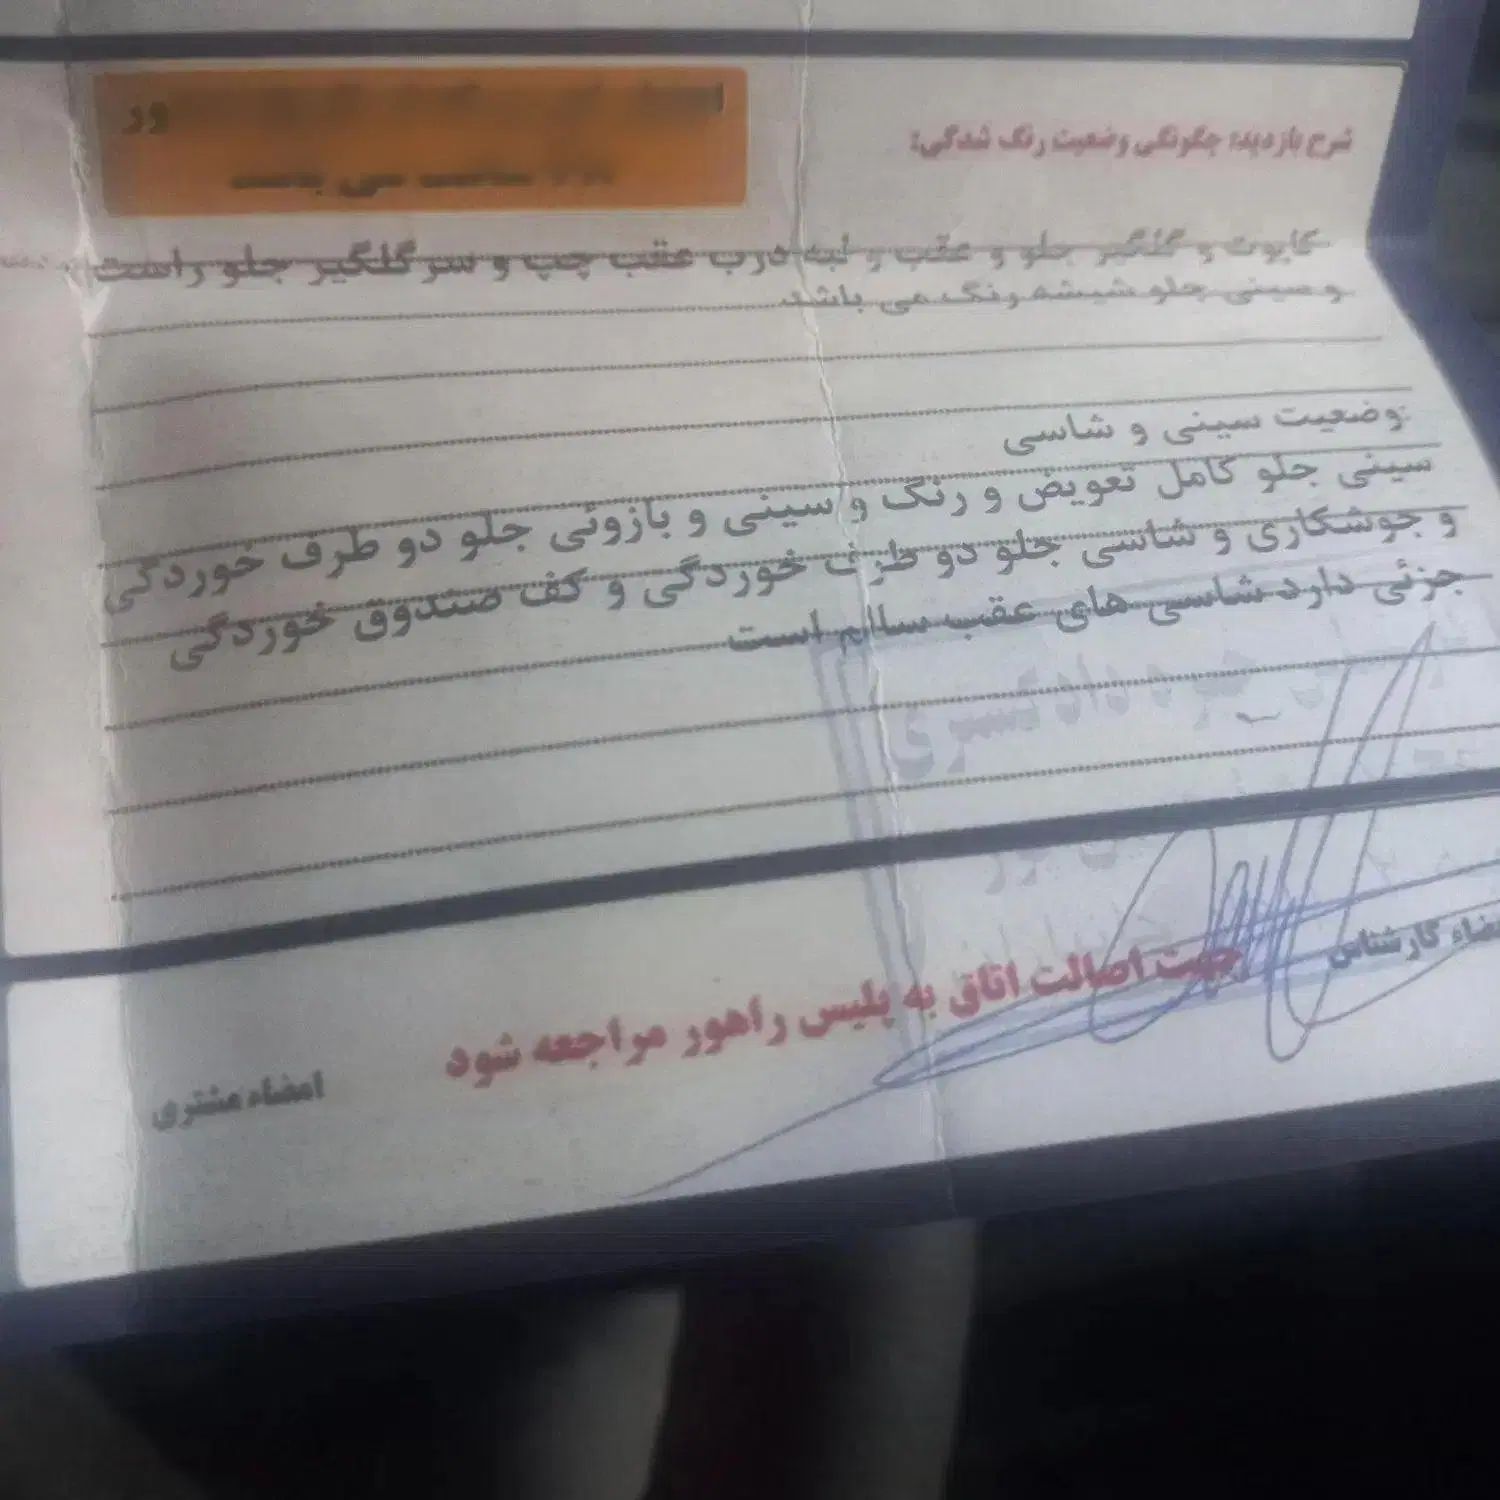 شرح بازدید: چگونگی وضعیت رنگ شدگی:
ور
می باشد
کاپوت و گلگیر جلو و عقب و لبه درب عقب چپ و سر گلگیر جلو راست
و سینی جلو شیشه رنگ می باشد
وضعیت سینی و شاسی
سینی جلو کامل تعویض و رنگ و سینی و بازوئی جلو دو طرف خوردگی
و جوشکاری و شاسی جلو دو طرف خوردگی و کف صندوق خوردگی
جزئی دارد شاسی های عقب سالم است
دادگستری
امضاء کارشناس
جهت اصالت اتاق به پلیس راهور مراجعه شود
امضاء مشتری